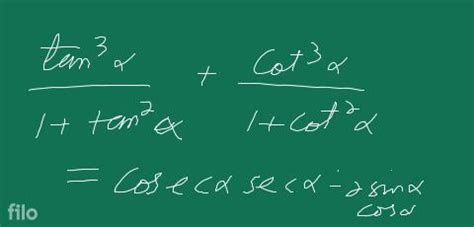 tan³α / 1 + tan²α + cot³α / 1 + cot²α
= cosecα secα - 2 sinα cosα
filo